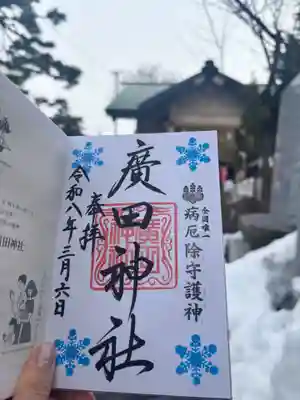 全国唯一
病厄除守護神
廣田神社
奉拝
令和八年三月六日
田神社